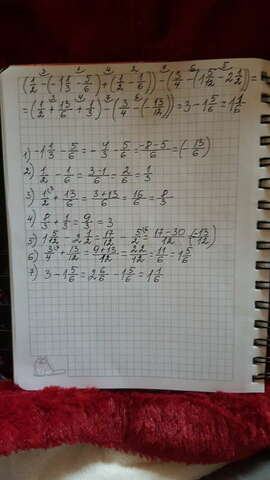 (1/2 - (-1 1/3 - 5/6) + (1/2 - 1/6)) - (3/4 - (1 5/12 - 2 1/2)) =
= (1/2 + 13/6 + 1/3) - (3/4 - (-13/12)) = 3 - 1 5/6 = 1 1/6
1) -1 1/3 - 5/6 = -4/3 - 5/6 = -8-5/6 = (-13/6)
2) 1/2 - 1/6 = 3-1/6 = 2/6 = 1/3
3) 1/2 + 13/6 = 3+13/6 = 16/6 = 8/3
4) 8/3 + 1/3 = 9/3 = 3
5) 1 5/12 - 2 1/2 = 17/12 - 5/2 = 17-30/12 = (-13/12)
6) 3/4 + 13/12 = 9+13/12 = 22/12 = 11/6 = 1 5/6
7) 3 - 1 5/6 = 2 6/6 - 1 5/6 = 1 1/6